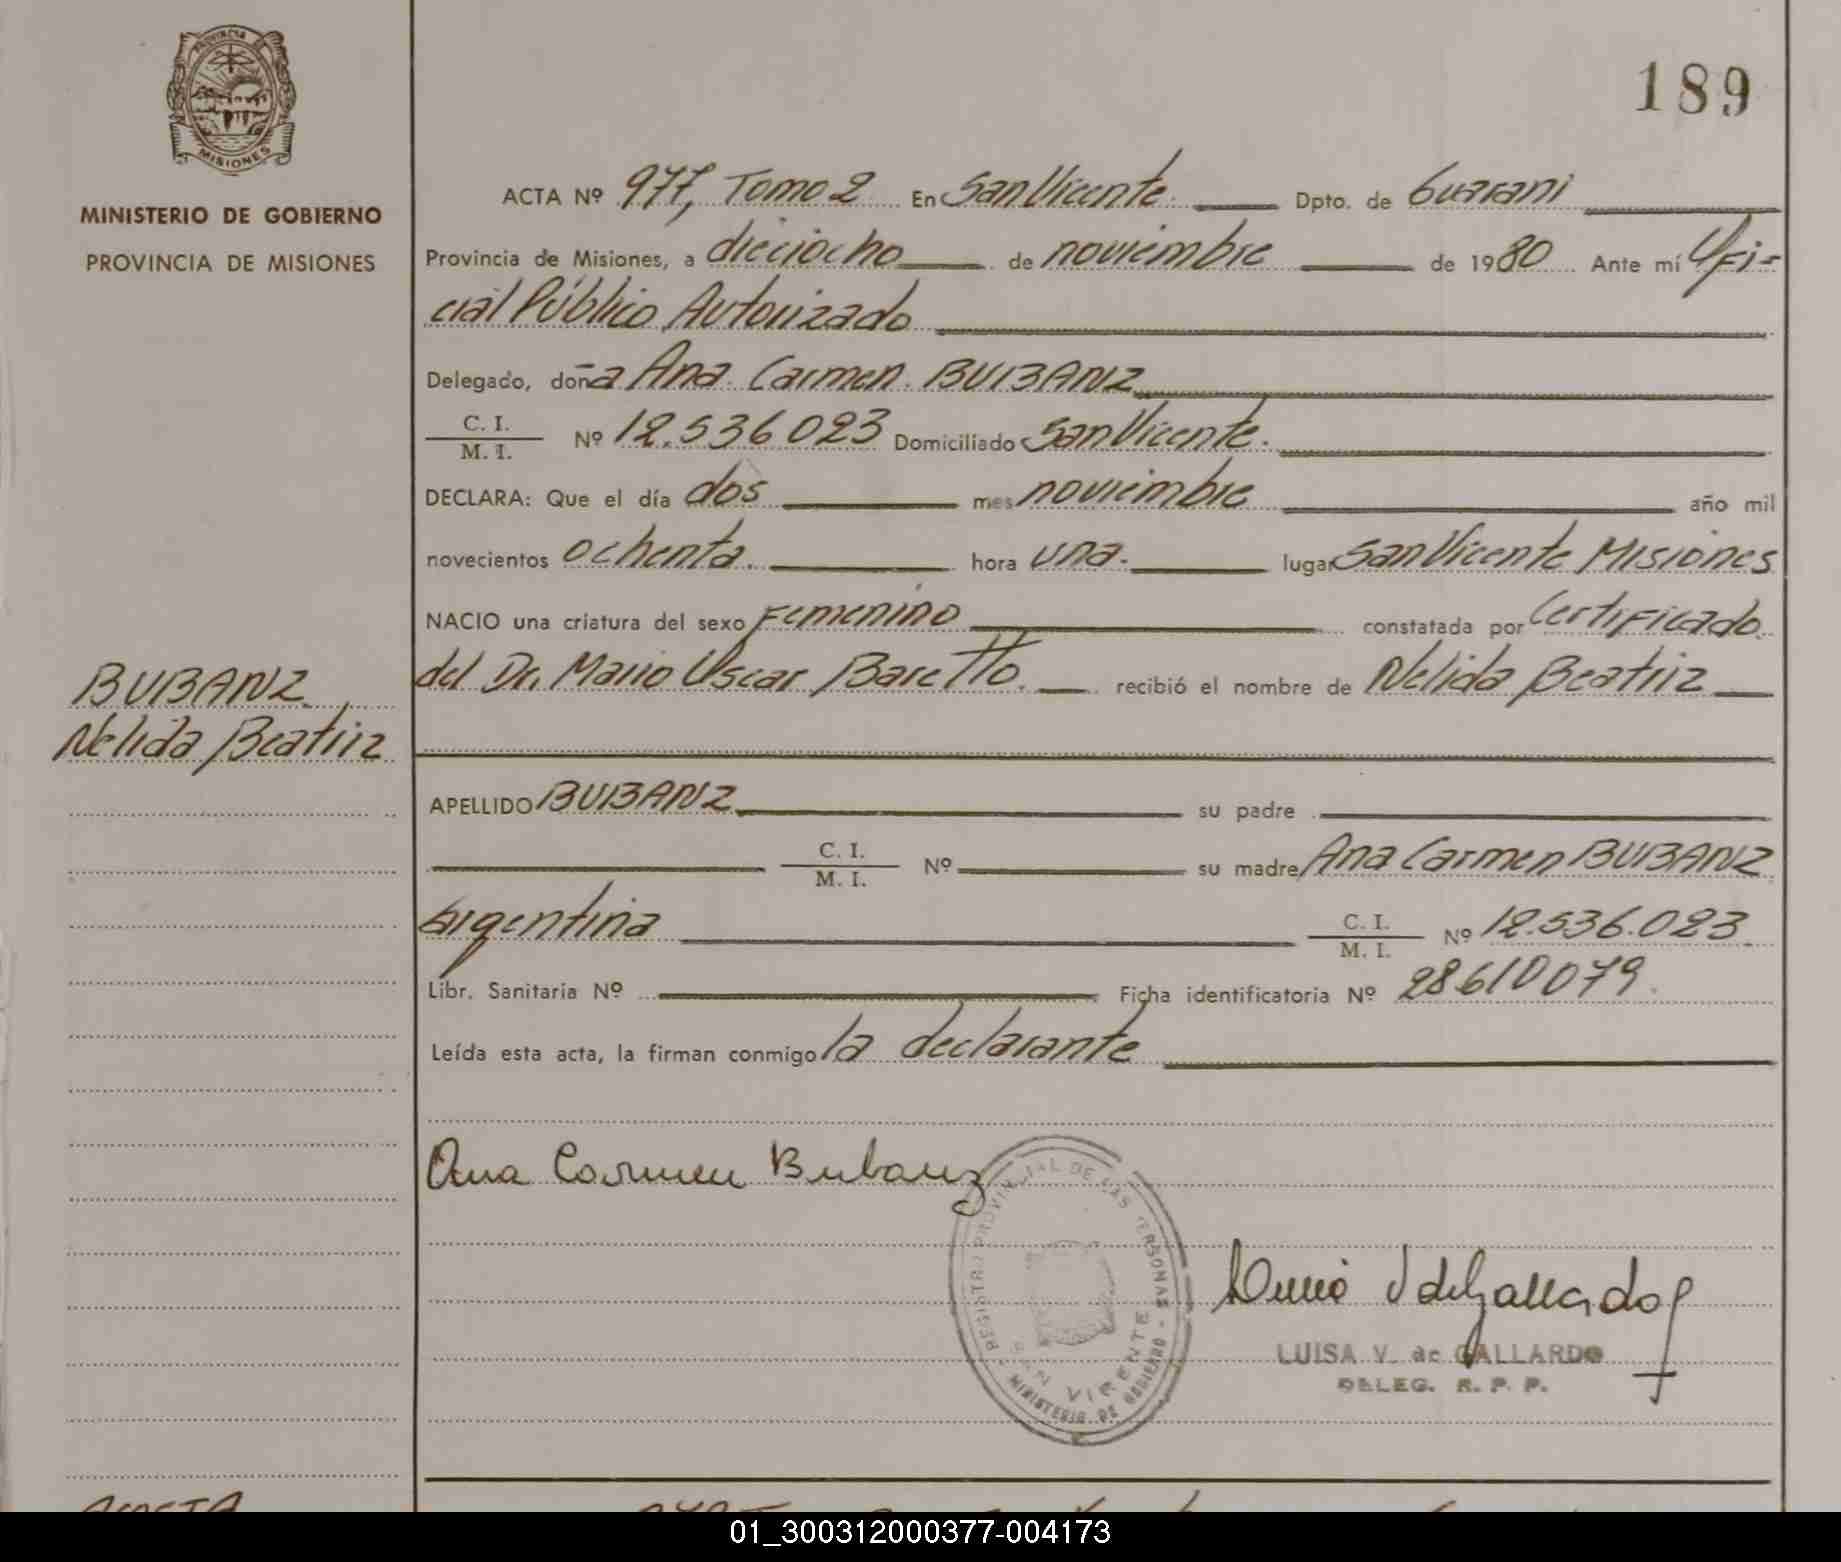 189
PROVINCIA DE
MISIONES
MINISTERIO DE GOBIERNO
PROVINCIA DE MISIONES
ACTA Nº 977, Tomo 2 En San Vicente. Dpto. de Guarani
Provincia de Misiones, a dieciocho de noviembre de 1980 Ante mí Ofi-
cial Público Autorizado
Delegado, doña Ana Carmen BUBANZ
C. I.
M. I. Nº 12.536.023 Domiciliado San Vicente.
DECLARA: Que el día dos mes noviembre año mil
novecientos ochenta. hora una. lugar San Vicente Misiones
NACIO una criatura del sexo Femenino constatada por Certificado
del Dr. Mario Oscar Baretto. recibió el nombre de Nelida Beatriz
BUBANZ
Nelida Beatriz
APELLIDO BUBANZ su padre
C. I.
M. I. Nº su madre Ana Carmen BUBANZ
argentina C. I.
M. I. Nº 12.536.023.
Libr. Sanitaria Nº Ficha identificatoria Nº 28610079.
Leída esta acta, la firman conmigo la declarante
Ana Carmen Bubanz
REGISTRO PROVINCIAL DE LAS PERSONAS - MINISTERIO DE GOBIERNO -
SAN VICENTE
LUISA V. de GALLARDO
DELEG. R. P. P.
01_300312000377-004173